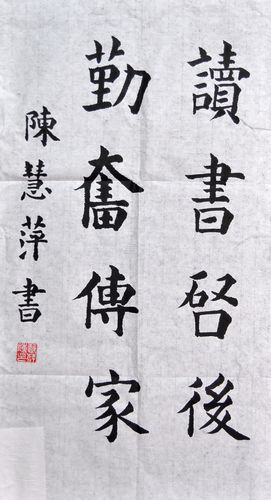 讀書啓後
勤奮傳家
陳慧萍書